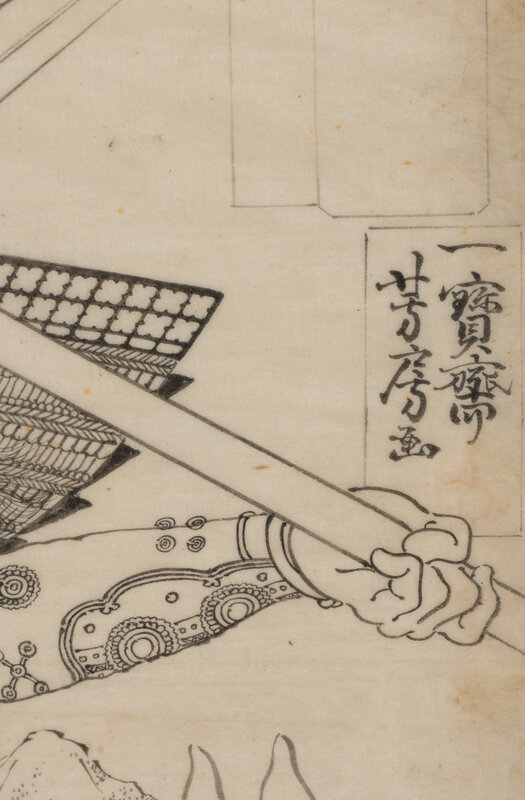 一寶齋
芳房画